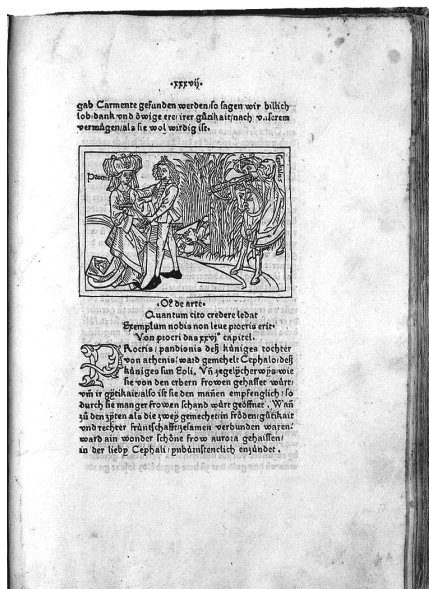 ·xxxvij·
gab Carmente gefunden werden/so sagen wir billich
lob/dank vnd öwige ere/irer gütikait/nach vnserem
vermügen/als sie wol wirdig ist.
Procris
·Oꝫ de arte·
Quantum cito credere ledat
Exemplum nobis non leue procris erit·
Von procri das xxvjᵒ capitel.
PRocris/pandionis deß küniges tochter
von athenis/ward gemehelt Cephalo/deß
küniges sun Eoli/ Vñ
sie von den erbern frowen gehasset würt/
vm̄ ir gytikait/also ist sie den mañen empfenglich/so
durch sie manger frowen schand würt geöffnet. Wañ
zů den zyten als die zwey gemechet/in fröden/gütikait
vnd rechter früntschafft/zesamen verbunden waren/
ward ain wonder schöne frow aurora gehaissen/
in der lieby Cephali/ynbrünstenclich enzündet.